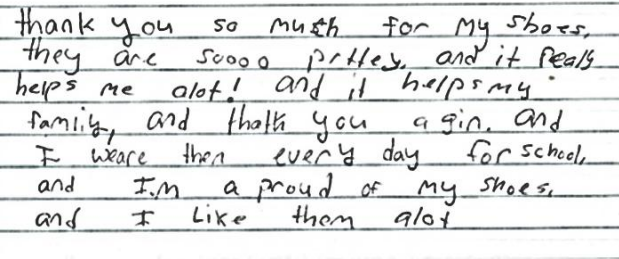 thank you so muth for my shoes,
they are soooo prttey. and it Realy
helps me alot! and it helps my
familiy, and thath you agin. and
I weare then every day for school,
and I.m a proud of my shoes,
and I Like them alot